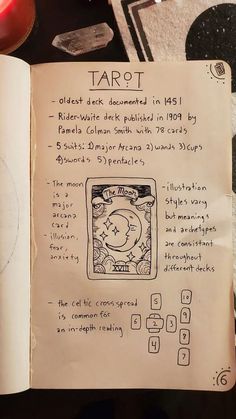 TAROT
- oldest deck documented in 1451
- Rider-Waite deck published in 1909 by
Pamela Colman Smith with 78 cards
- 5 suits: 1) major Arcana 2) wands 3) cups
4) swords 5) pentacles
- The moon
is a
major
arcana
card
- illusion,
fear,
anxiety
The Moon
XVIII
- illustration
styles vary
but meanings
and archetypes
are consistant
throughout
different decks
- the celtic cross spread
is common for
an in-depth reading
5
10
6
2
3
9
4
8
7
6